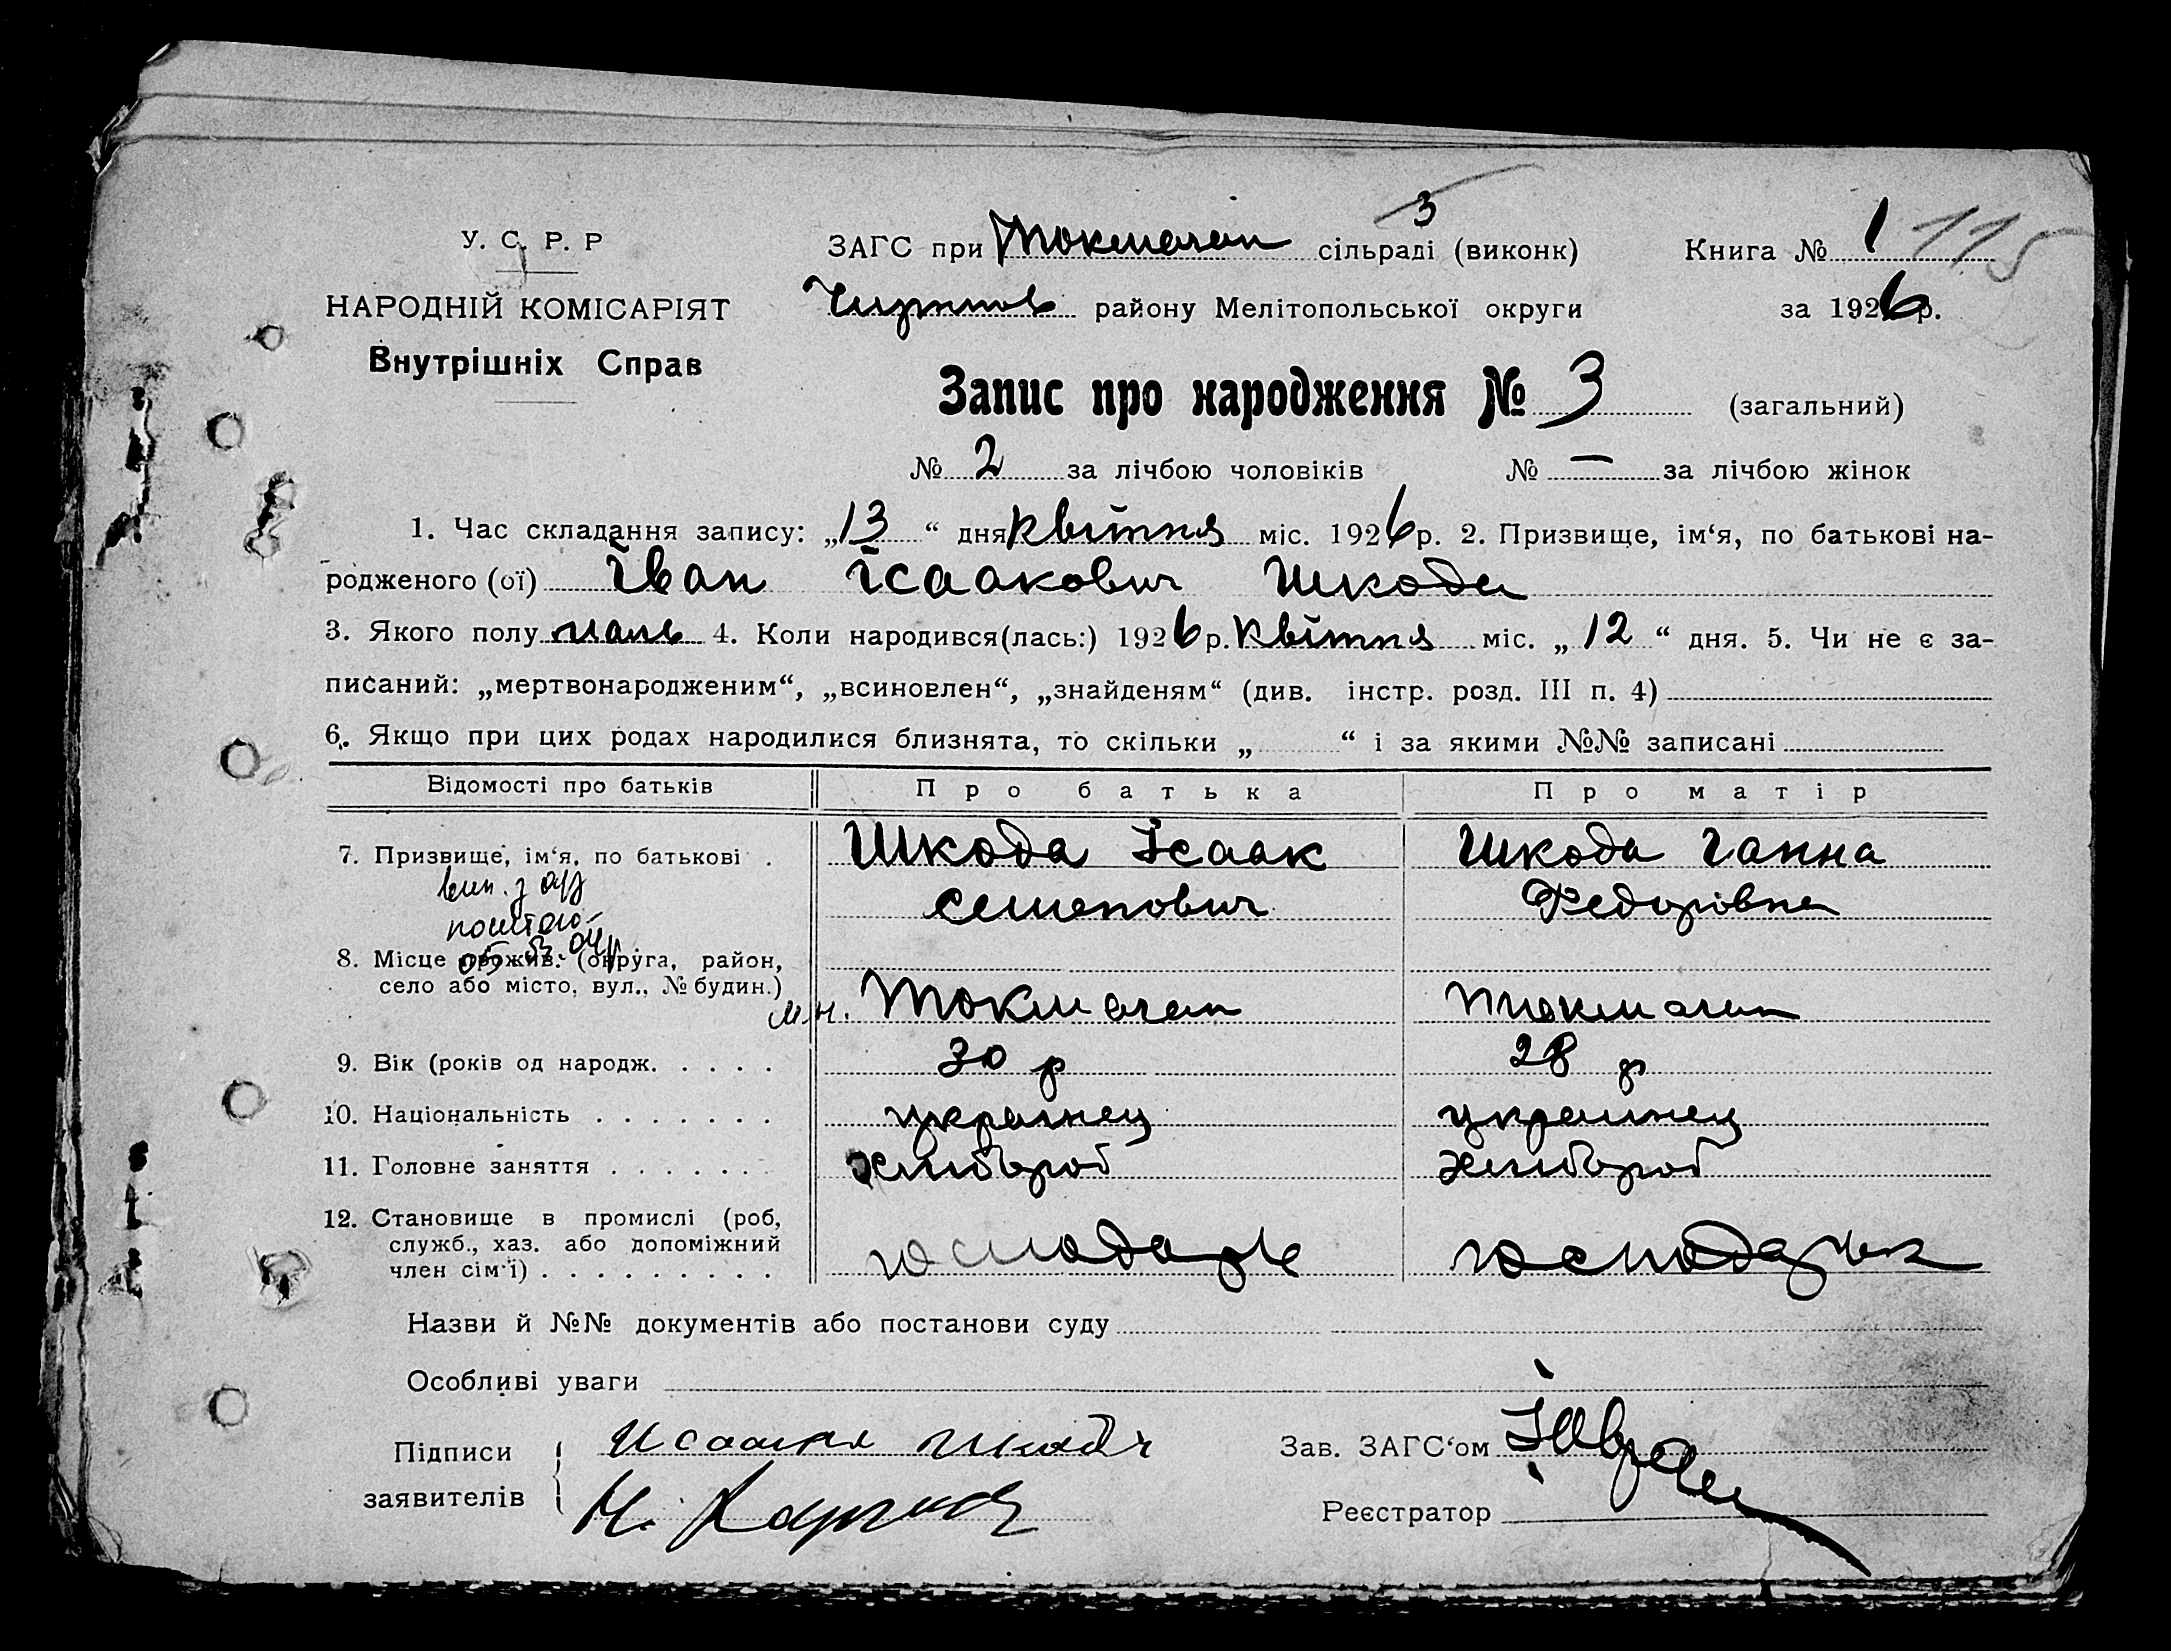 У. С. Р. Р
НАРОДНІЙ КОМІСАРІЯТ
Внутрішніх Справ
3
ЗАГС при Токмачан сільраді (виконк)
Книга № 1 115
району Мелітопольської округи
за 1926 р.
Запис про народження № 3 (загальний)
№ 2 за лічбою чоловіків № — за лічбою жінок
1. Час складання запису: „13“ дня Квітня міс. 1926 р. 2. Призвище, ім‘я, по батькові на-
родженого (ої) Іван Ісаакович Шкода
3. Якого полу 4. Коли народився(лась:) 1926 р. Квітня міс. „12“ дня. 5. Чи не є за-
писаний: „мертвонародженим“, „всиновлен“, „знайденям“ (див. інстр. розд. III п. 4)
6. Якщо при цих родах народилися близнята, то скільки „ “ і за якими №№ записані
Відомості про батьків Про батька Про матір
7. Призвище, ім‘я, по батькові . Шкода Ісаак Шкода Ганна
Семенович Федорівна
8. Місце прожив. (округа, район,
село або місто, вул., № будин.) Токмачан Токмачан
9. Вік (років од народж. . . . . 30 р 28 р
10. Національність . . . . . . . українец українец
11. Головне заняття . . . . . . . хлибороб хлибороб
12. Становище в промислі (роб,
служб., хаз. або допоміжний
член сім‘ї) . . . . . . . . . господарь
Назви й №№ документів або постанови суду
Особливі уваги
Підписи
заявителів
Зав. ЗАГС‘ом
Реєстратор